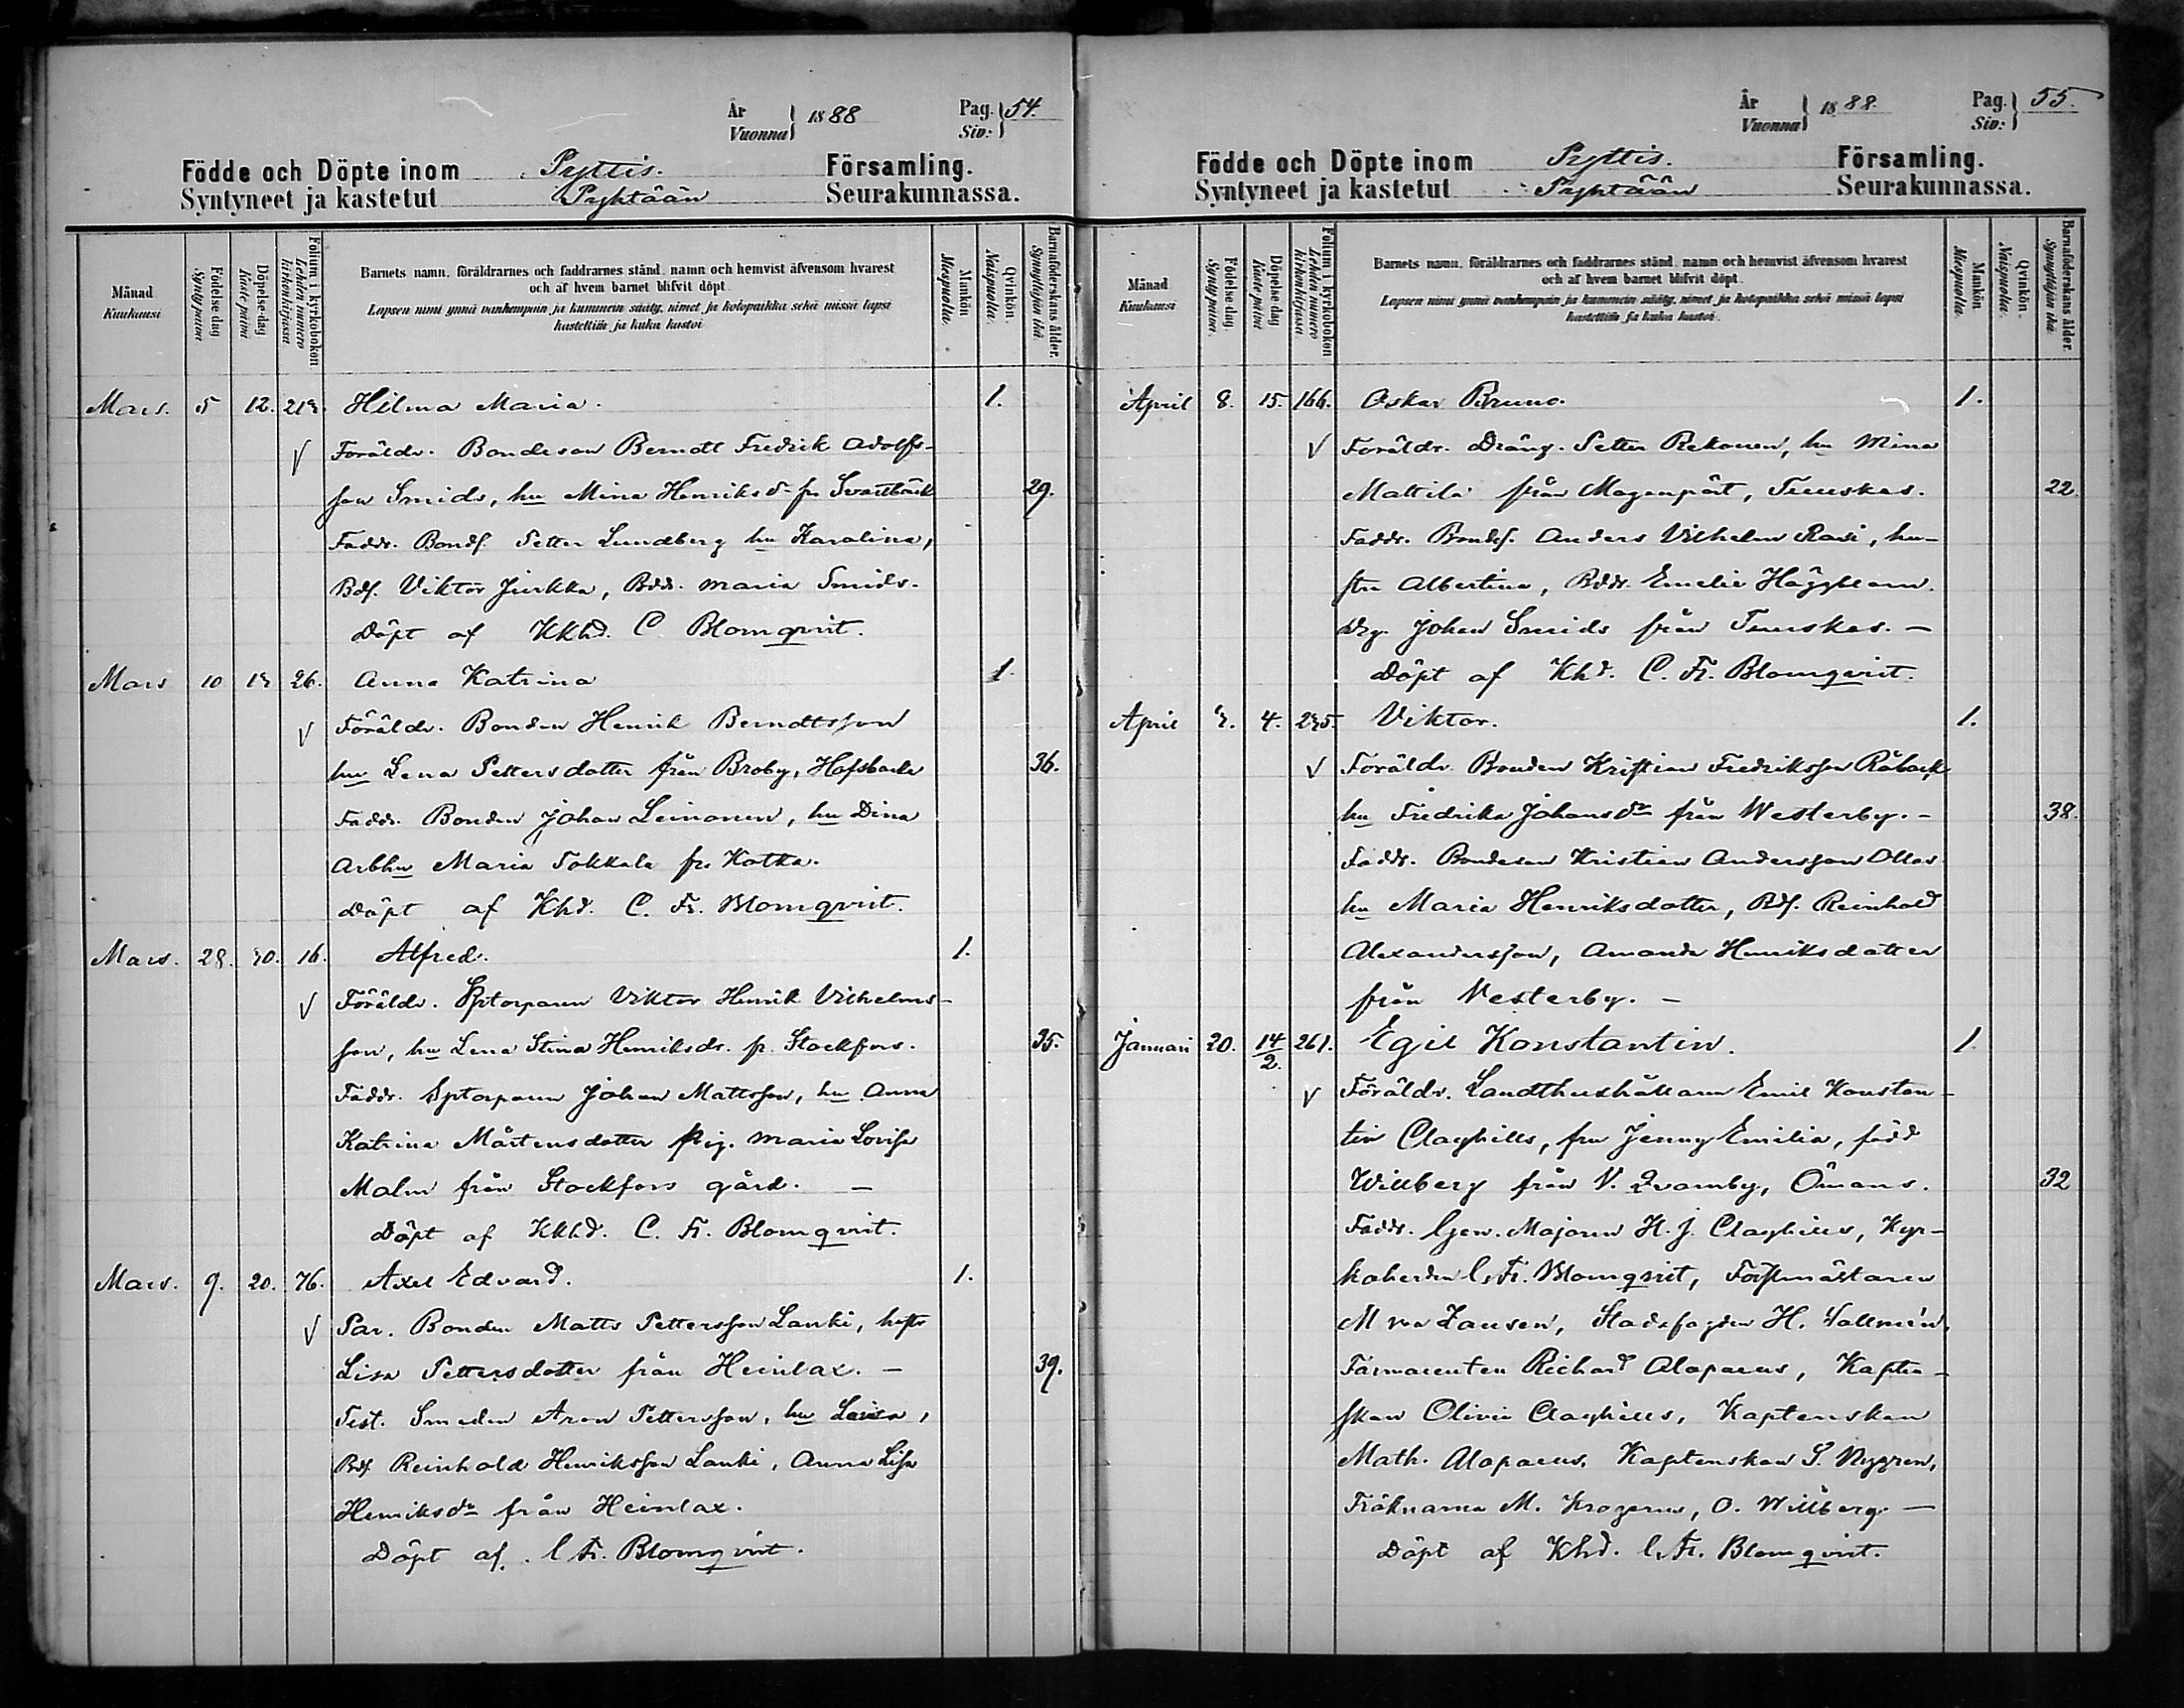 År
Vuonna
1888
Pag.
Siv:
54.
Födde och Döpte inom Pyttis. Församling.
Syntyneet ja kastetut Pyhtään Seurakunnassa.
Månad
Kuukausi
Födelse dag
Synty päivä
Döpelse dag
Kaste päivä
Folium i kyrkobokon
Lehden numero kirkonkirjassa
Barnets namn, föräldrarnes och faddrarnes stånd, namn och hemvist äfvensom hvarest
och af hvem barnet blifvit döpt
Lapsen nimi ynnä vanhempain ja kummein sääty, nimet ja kotopaikka sekä missä lapsi
kastettiin ja kuka kastoi
Mankön
Miespuolia.
Qvinkön.
Naispuolia.
Barnaföderskans ålder.
Synnyttäjän ikä.
Mars. 5 12. Hilma Maria. 1.
Föräldr. Bondeson Berndt Fredrik Adolfs-
son Smids, hu Mina Henriksdr fr Svartbäck 29.
Faddr. Bondf. Petter Lundberg hu Karolina,
Bdf. Viktor Jurkka, Bddr. Maria Smids.
Döpt af KKhd. C Blomqvist.
Mars 10 26. Anna Katrina 1.
Föräldr. Bonden Henrik Berndtsson
hu Lena Pettersdotter från Broby, 36.
Faddr. Bonden Johan Leinonen, hu Dina
Arbhu Maria Tokkala fr. Kotka.
Döpt af Khd. C. Fr. Blomqvist.
Mars. 28. 30. 16. Alfred. 1.
Föräldr. Sptorparen Viktor Henrik Vilhelms-
son, hu Lena Stina Henriksdr. fr. Stockfors. 35.
Faddr. Sptorparen Johan Mattsson, hu Anna
Katrina Mårtensdotter Pig. Maria Lovisa
Malm från Stockfors gård. —
Döpt af KKhd. C. Fr. Blomqvist.
Mars. 9. 20. 76. Axel Edvard. 1.
Par. Bonden Matts Pettersson Lanki, hustr
Lisa Pettersdotter från Heinlax. — 39.
Test. Smeden Aron Pettersson, hu Lovisa,
Bdf Reinhold Henriksson Lanki, Anna Lisa
Henriksdr från Heinlax.
Döpt af. C Fr. Blomqvist.
År
Vuonna
1888.
Pag.
Siv:
55.
Födde och Döpte inom Pyttis. Församling.
Syntyneet ja kastetut Pyhtään Seurakunnassa.
Månad
Kuukausi
Födelse dag.
Synty päivä.
Döpelse dag
Kaste päivä
Folium i kyrkobokon
Lehden numero kirkonkirjassa
Barnets namn, föräldrarnes och faddrarnes stånd, namn och hemvist äfvensom hvarest
och af hvem barnet blifvit döpt.
Lapsen nimi ynnä vanhempain ja kummein sääty, nimet ja kotopaikka sekä missä lapsi
kastettiin ja kuka kastoi.
Mankön
Miespuolia.
Qvinkön.
Naispuolia.
Barnaföderskans ålder.
Synnyttäjän ikä.
April 8. 15. 166. Oskar Bruno. 1.
Föräldr. Dräng. Petter Rekonen, hu Mina
Mattila från Mogenpört, Tmuskas. 22
Faddr. Bondef. Anders Vilhelm Rasi, hu-
stru Albertina, Bddr. Emelie Häggblom.
Drg. Johan Smids från —
Döpt af Khd. C. Fr. Blomqvist.
April 4. Viktor. 1.
Föräldr. Bonden Kristian Fredriksson Råback
hu Fredrika Johansdr från Westerby. - 38.
Faddr. Bondeson Kristian Andersson Ollas
hu Maria Henriksdotter, Bdf. Reinhold
Alexandersson, Amanda Henriksdotter
från Vesterby. —
Januari 20. 14/2. 261. Egil Konstantin. 1
Föräldr. Landthushållaren Emil Konstan-
tin Clayhills, fru Jenny Emilia, född
Willberg från V. Qvarnby, Ömans. 32
Faddr. Gen. Majoren H. J. Clayhills, Kyr-
koherden C. Fr. Blomqvist, Forstmästaren
M von Zansen, Stadsfogden H. Vallmén.
Farmaceuten Richard Alopaeus, Kapten-
skan Olivia Clayhills, Kaptenskan
Math. Alopaeus. Kaptenskan S. Nygren,
Fröknarna M. Krogerus, O. Willberg. —
Döpt af Khd. C. Fr. Blomqvist.